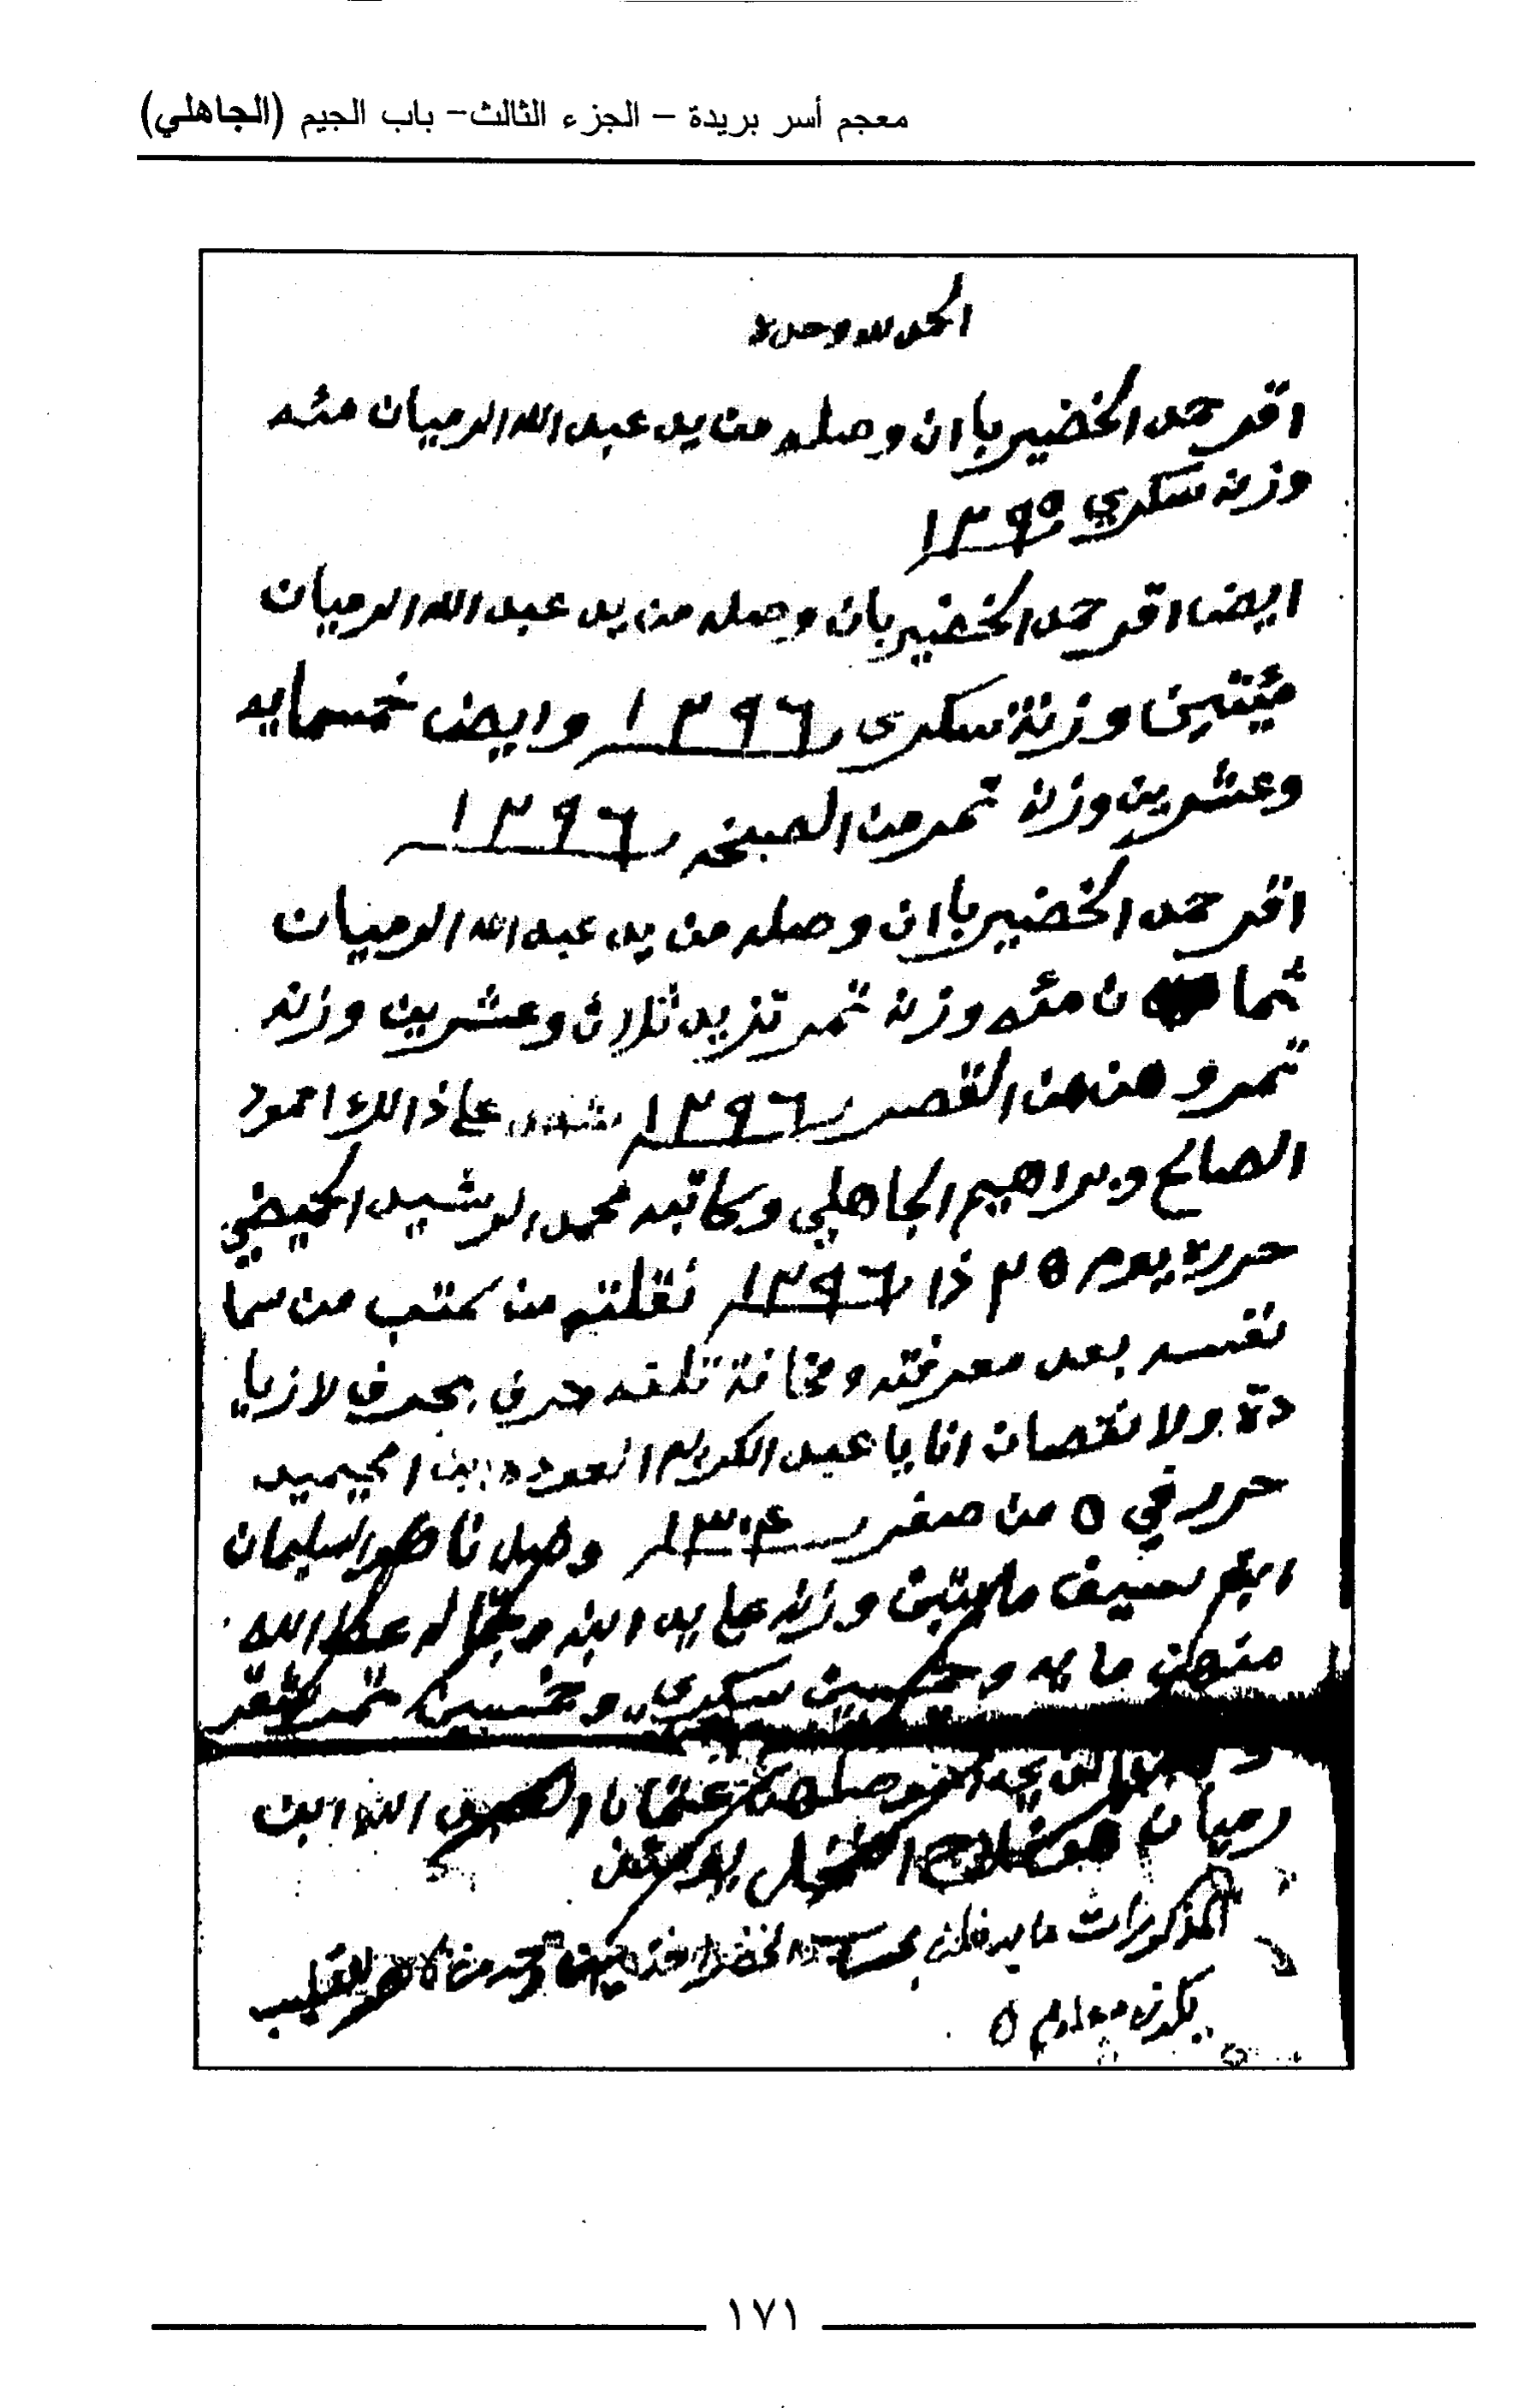 معجم أسر بريدة – الجزء الثالث– باب الجيم (الجاهلي)
الحمد لله وحده
اقر حمد الخضير باان وصله من يد عبد الله الرميان مئه
وزنه سكري ١٢٩٥
ايضا اقر حمد الخضير بان وصله من يد عبد الله الرميان
مئيتين وزنة سكري ١٢٩٦ وايضا خمسمايه
وعشرين وزنه تمر من الصبخه ١٢٩٦
اقر حمد الخضير باان وصله من يد عبد الله الرميان
ثمان مئه وزنه تمر تزيد ثلاث وعشرين وزنه
تمر وهن من القصر ١٢٩٦ شهد علا ذالك احمود
الصالح وبراهيم الجاهلي وكاتبه محمد الرشيد الحميضي
حرره يوم ٢٥ ذا ١٢٩٦ نقلته من كتب من سما
نفسه بعد معرفته ومخافة تلفه حرف بحرف لا زيا
دة ولا نقصان انايا عبد الكريم العوده ابن امحيميد
حرر في ٥ من صفر ١٣٠٤ وصل ناصر السليمان
ابن سيف مايتين وزنه علا يد ابنه
منهن مايه وخمسين سكري وخمسين تمر
ابن
رميان
المذكورات
يكون معلوم ٥
١٧١